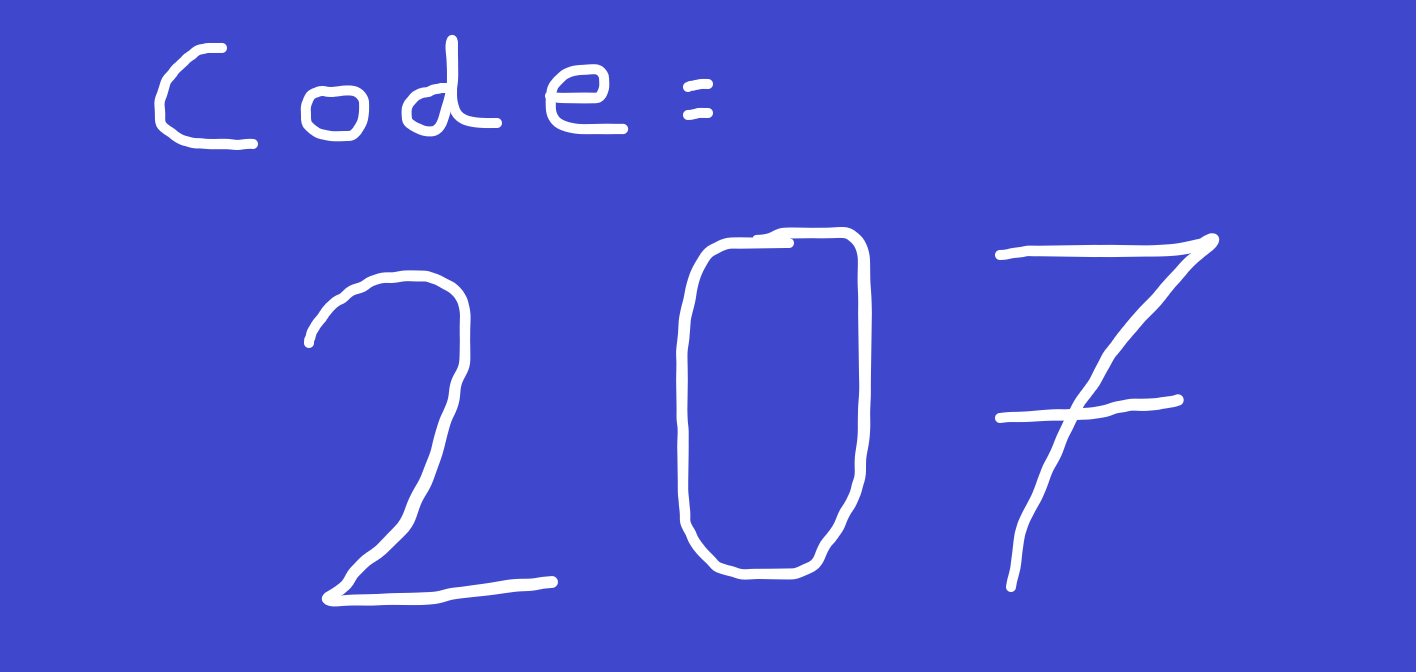 Code=
207